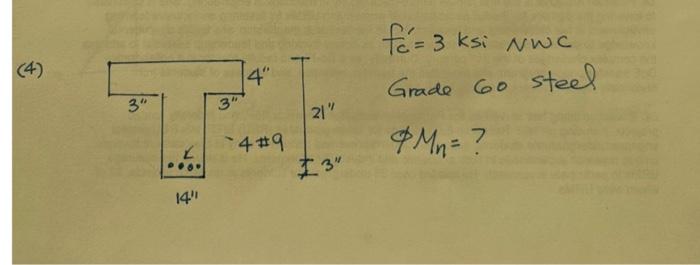 f'c = 3 ksi NWC
(4)
4"
Grade 60 steel
3" 3"
21"
4 #9
ϕMn = ?
3"
14"